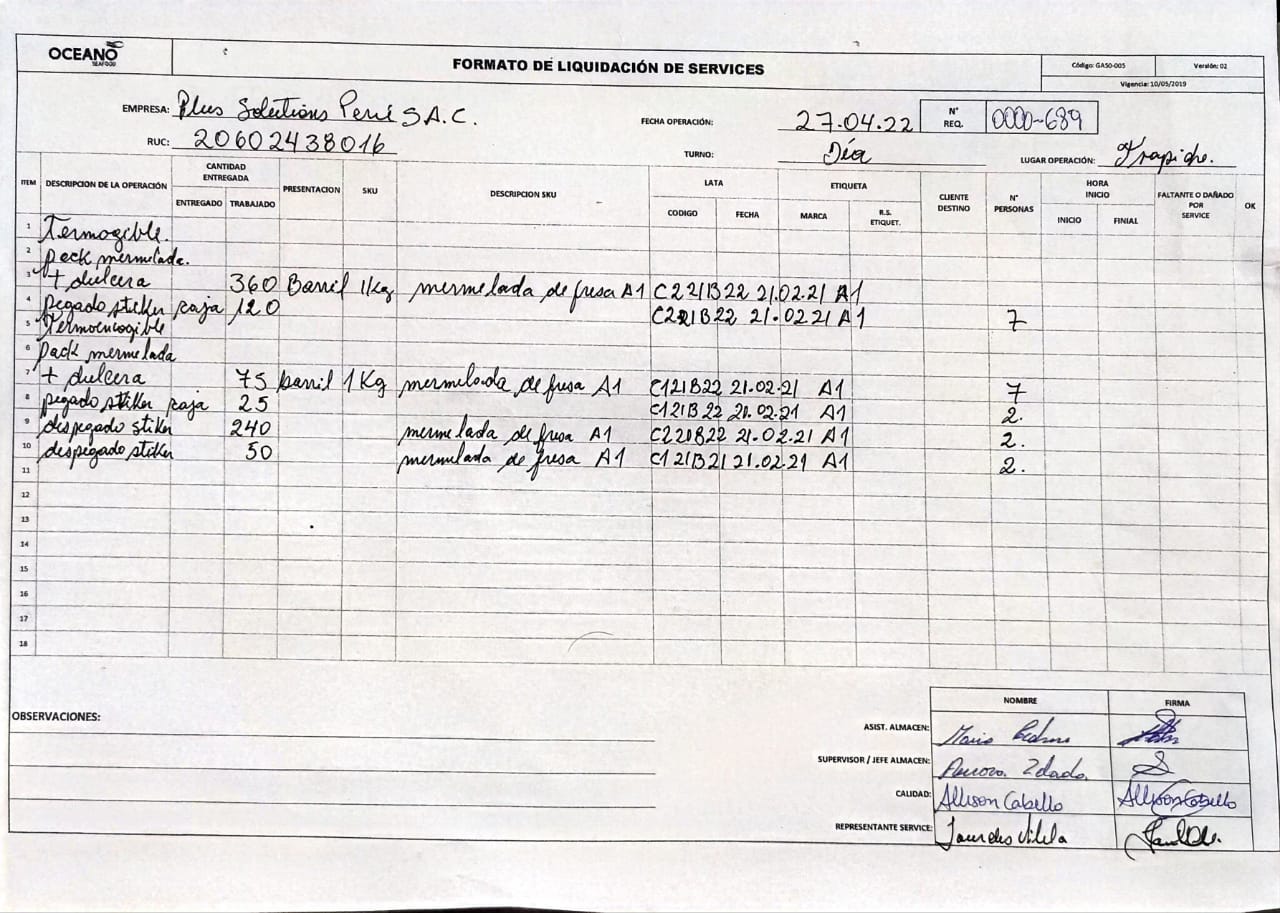 OCEANO
SEAFOOD
FORMATO DE LIQUIDACIÓN DE SERVICES
Código: GA50-005 Versión: 02
Vigencia: 10/05/2019
EMPRESA: Plus Solutions Perú S A.C.
FECHA OPERACIÓN: 27.04.22
N° REQ. 0000-689
RUC: 20602438016
TURNO: Día
LUGAR OPERACIÓN: Trapiche.
ITEM DESCRIPCION DE LA OPERACIÓN CANTIDAD ENTREGADA PRESENTACION SKU DESCRIPCION SKU LATA ETIQUETA CLIENTE DESTINO N° PERSONAS HORA INICIO FALTANTE O DAÑADO POR SERVICE OK
ENTREGADO TRABAJADO CODIGO FECHA MARCA R.S. ETIQUET. INICIO FINIAL
1 Termogible.
2 pack mermelada.
3 + dulcera 360 Barril 1kg mermelada de fresa A1 C221B22 21.02.21 A1
4 pegado stiker caja 120 C221B22 21.02.21 A1 7
5 Termoencogible
6 pack mermelada
7 + dulcera 75 barril 1 Kg mermelada de fresa A1 C121B22 21.02.21 A1 7
8 pegado stiker caja 25 C121B22 21.02.21 A1 2.
9 despegado stiker 240 mermelada de fresa A1 C220B22 21.02.21 A1 2.
10 despegado stiker 50 mermelada de fresa A1 C121B21 21.02.21 A1 2.
11
12
13
14
15
16
17
18
NOMBRE FIRMA
OBSERVACIONES:
ASIST. ALMACEN: Mario
SUPERVISOR / JEFE ALMACEN:
CALIDAD: Allison Cabello Allison Cabello
REPRESENTANTE SERVICE: Lourdes Vilela